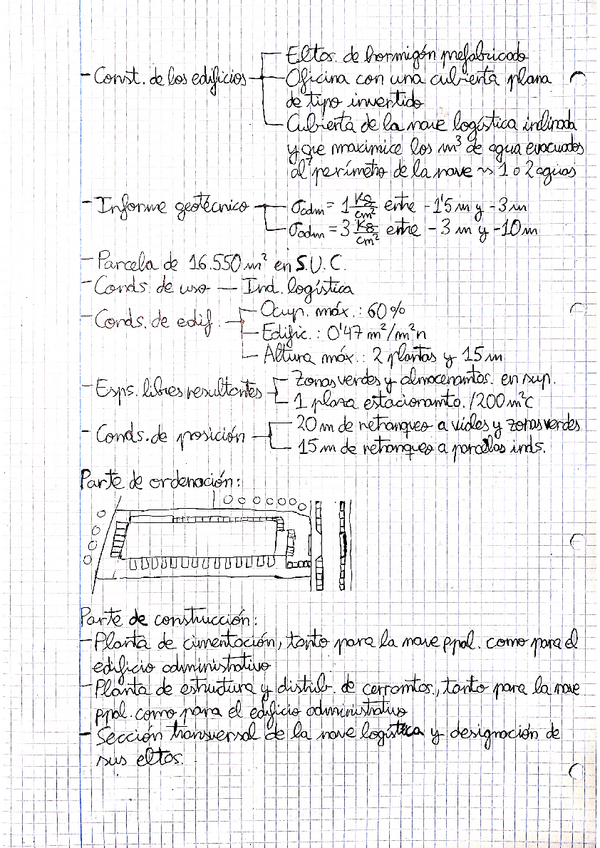 Eltos. de hormigón prefabricado
- Const. de los edificios
Oficina con una cubierta plana
de tipo invertido
Cubierta de la nave logística inclinada
y que maximice los m³ de agua evacuados
al perímetro de la nave ≈ 1 o 2 aguas
- Informe geotécnico
σadm = 1 Kg/cm² entre -1'5 m y -3 m
σadm = 3 Kg/cm² entre -3 m y -10 m
- Parcela de 16.550 m² en S.U.C.
- Conds. de uso — Ind. logística
- Conds. de edif.
Ocup. máx.: 60%
Edific.: 0'47 m²/m²n
Altura máx.: 2 plantas y 15 m
- Esps. libres resultantes
Zonas verdes y almacenamtos. en sup.
1 plaza estacionamto. /200 m²c
- Conds. de posición
20 m de retranqueo a viales y zonas verdes
15 m de retranqueo a parcelas inds.
Parte de ordenación:
Parte de construcción:
- Planta de cimentación, tanto para la nave ppal. como para el
edificio administrativo
- Planta de estructura y distrib. de cerramtos., tanto para la nave
ppal. como para el edificio administrativo
- Sección transversal de la nave logística y designación de
sus eltos.